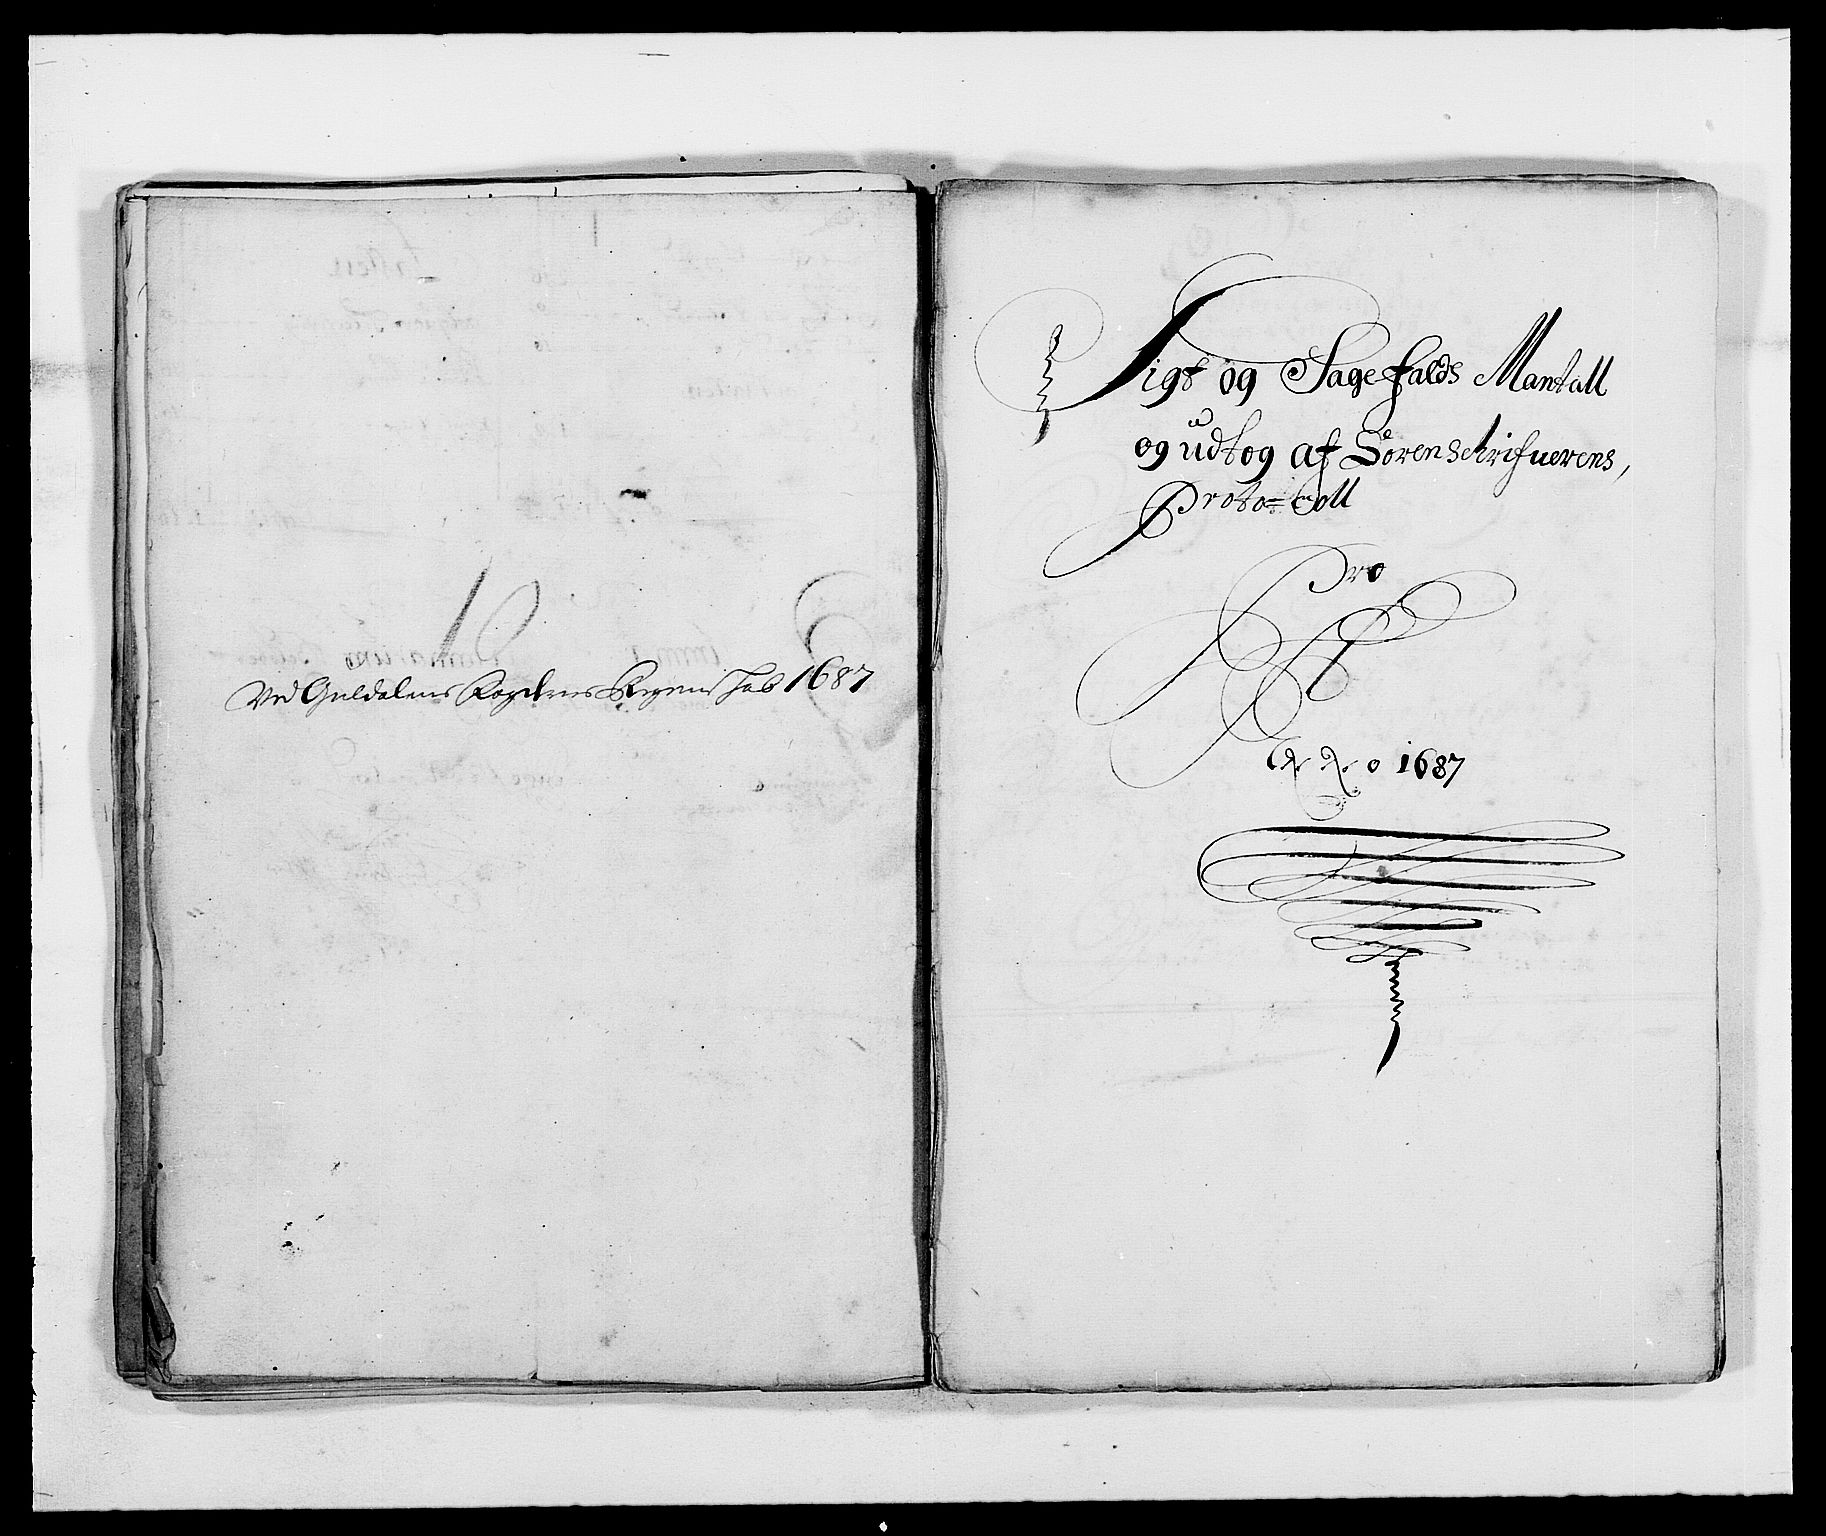 Ved Guldalens Fogderies Regenskab 1687
Sigt og Sagefalds Mantall
og udtog af Sorenschrifuerens,
Proto= Coll
Pro
A
Anno 1687